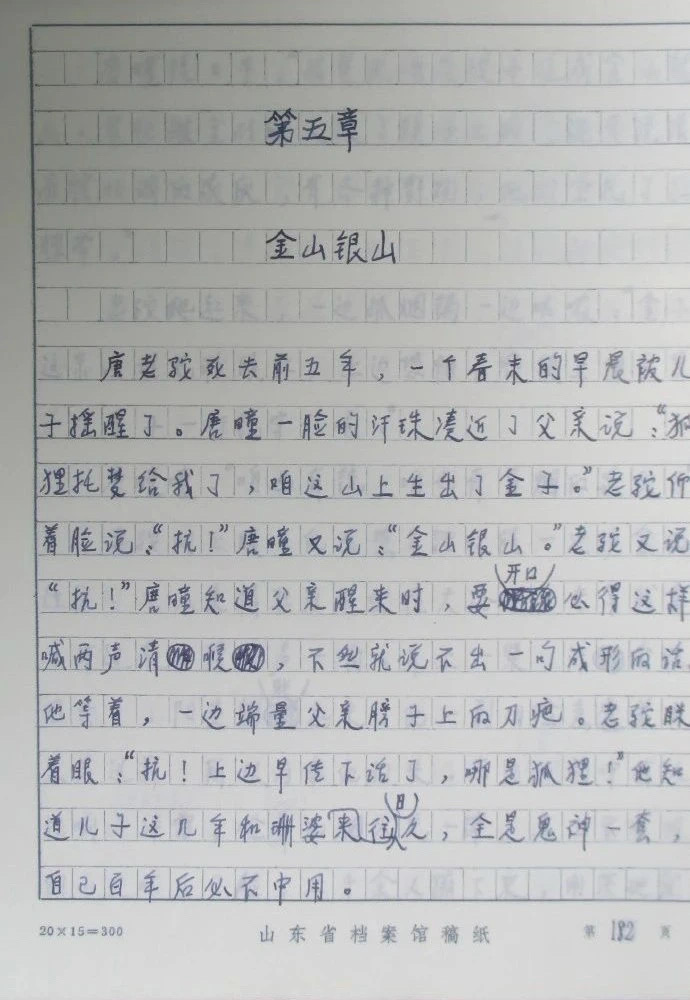 第五章
金山银山
唐老驼死去前五年，一个春末的早晨被儿
子摇醒了。唐童一脸的汗珠凑近了父亲说：“狐
狸托梦给我了，咱这山上生出了金子。”老驼仰
着脸说：“抗！”唐童又说：“金山银山。”老驼又说
“抗！”唐童知道父亲醒来时，要开口必得这样
喊两声清喉，不然就说不出一句成形的话。
他等着，一边端量父亲膀子上的刀疤。老驼眯
着眼：“抗！上边早传下话了，哪是狐狸！”他知
道儿子这几年和珊婆来往日久，全是鬼神一套，
自己百年后必不中用。
20×15=300
山东省档案馆稿纸
第 182 页